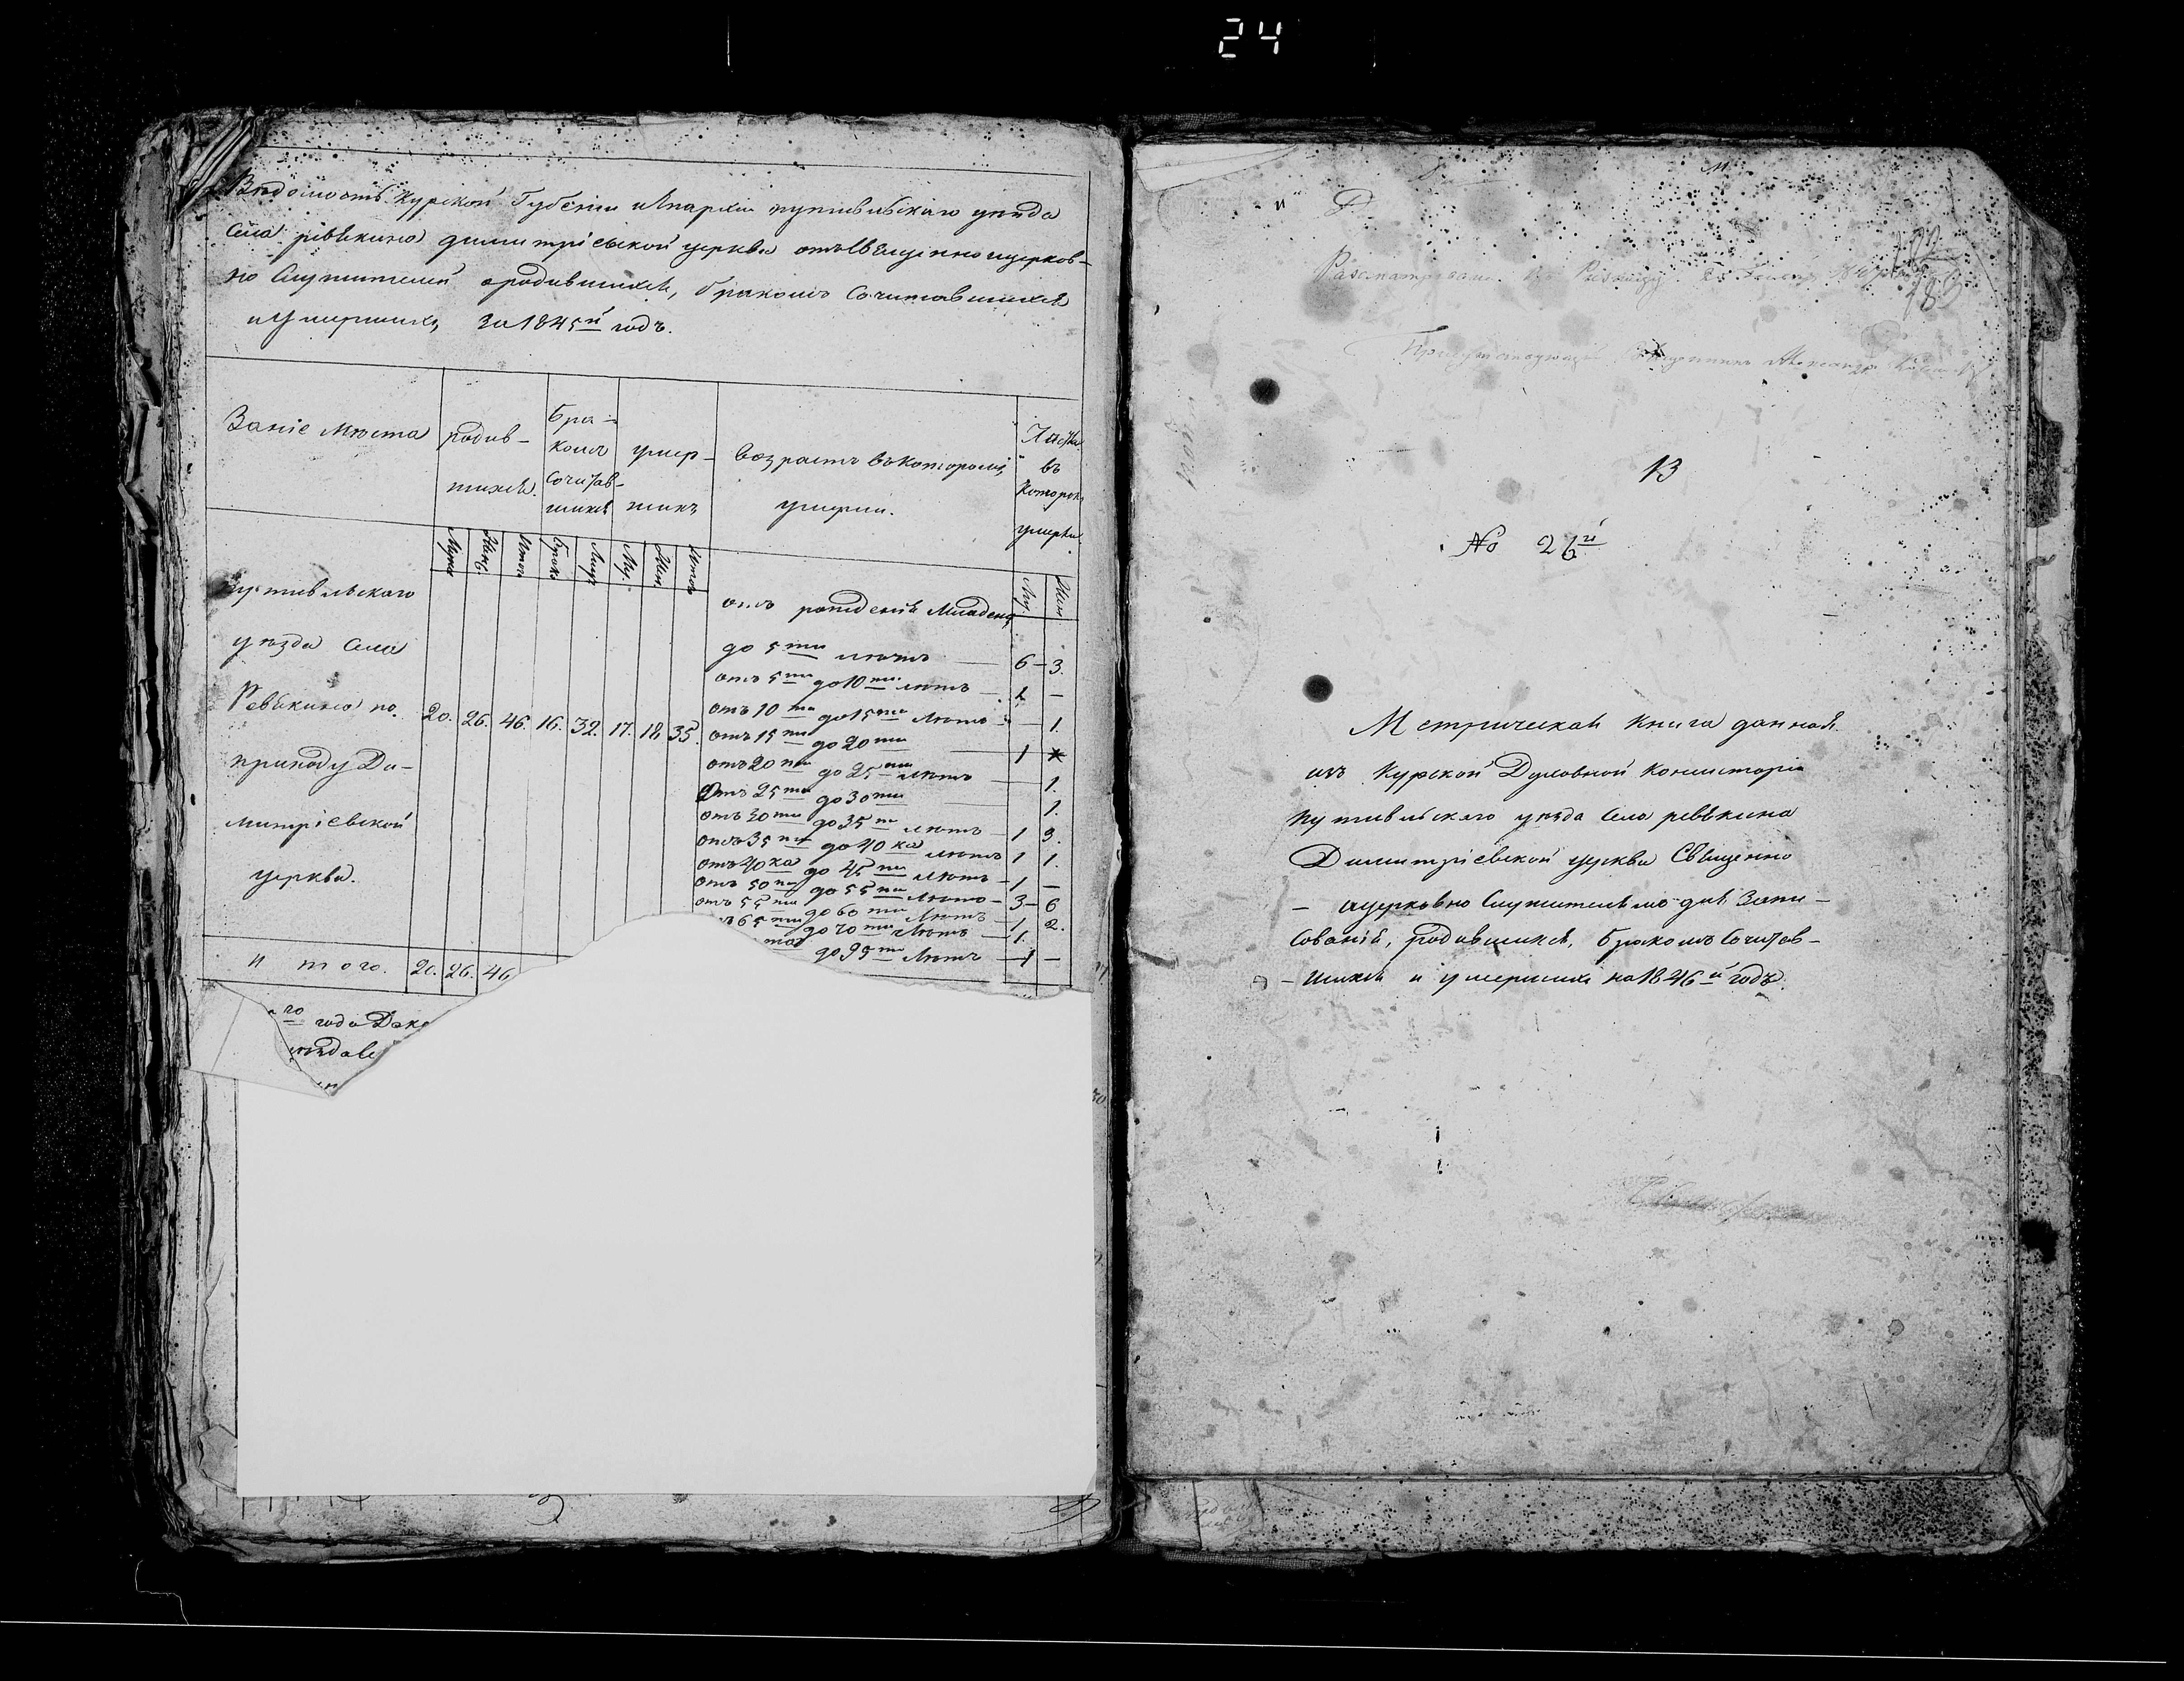 24
Вѣдомость Курской Губеніи иЛпархіи путивльскаго уѣзда
Села ревѣкина димитріевской церкви отъСвещенноицерков-
но Служителей ородившихся, бракомъ Сочитавшихся
иУмершихъ За 1845й годъ.
Званіе Мѣста
родив-
шихся.
Бра-
комъ
Сочитав-
шихся
умер-
шихъ
возрастъ вкоторомъ
умерли.
въ
которомъ
умерли.
Муж
Жен.
Итог
Брак
Лиц
Му.
Жен
Итог
Му.
Жен
Путивльскаго
уѣзда Села
Ревѣкина по
приходу Ди-
митріевской
церкви.
20. 26. 46. 16. 32. 17. 18 35.
отъ рожденія Младенц
до 5ти лѣтъ — 6 — 3.
отъ 5ти до 10ти лѣтъ — 2 —
отъ 10ти до 15ти лѣтъ — 1.
отъ 15ти до 20ти — 1
отъ 20ти до 25ти лѣтъ — 1.
Отъ 25ти до 30ти — 1.
отъ 30ти до 35ти лѣтъ — 1 3.
отъ 35ти до 40ка лѣтъ 1 1.
отъ 40ка до 45ти лѣтъ — 1 —
отъ 50ти до 55ти лѣтъ — 3 — 6
отъ 55ти до 60ти лѣтъ — 1 2.
65ти до 70ти лѣтъ — 1.
до 95ти лѣтъ — 1 —
И того. 20. 26. 46
го года Дек
13
№ 26й
Метрическая Книга данная
изъ Курской Духовной Консисторіи
путивльскаго уѣзда Села ревѣкина
Димитріевской церкви Священно
— ицерковно Служителямо для Запи-
сованія, родившихся, бракомъ Сочитав-
- шихся и умершихъ на 1846й годъ.